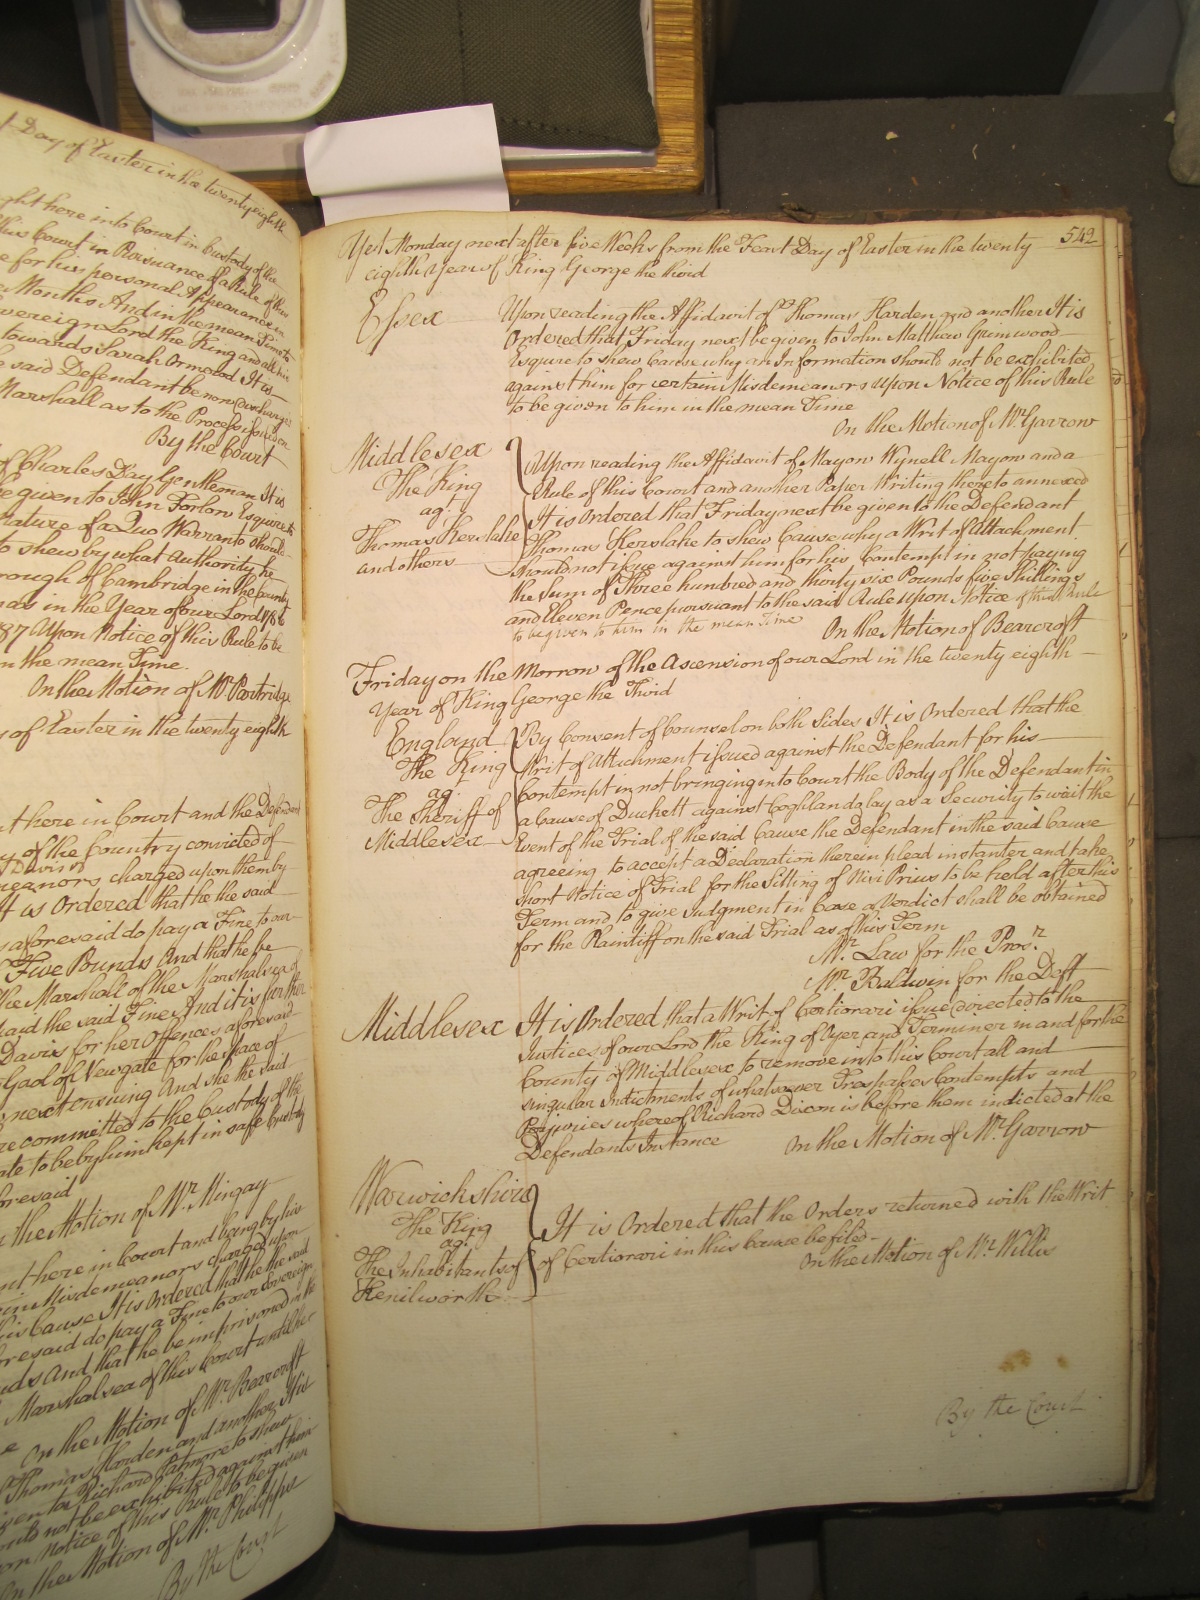 Day of Easter in the twenty eighth
ght here into Court in Custody of the
this Court in Pursuance of a Rule of this
e for his personal Appearance in
Months And in the mean Time to
overeign Lord the King and all his
towards Sarah Ormerod It is
e said Defendant be now discharged
Marshall as to the Process issued on
By the Court
of Charles Day Gentleman It is
e given to John Forlow Esquire to
nature of a Quo Warranto should
to shew by what Authority he
rough of Cambridge in the County
mas in the Year of our Lord 1786
87 Upon Notice of this Rule to be
n the mean Time
On the Motion of Mr. Partridge
s of Easter in the twenty eighth
nt here in Court and the Defendant
y of the Country convicted of
Davis of
meanors charged upon them by
It is Ordered that he the said
s aforesaid do pay a Fine to our
Five Pounds And that he be
the Marshall of the Marshalsea of
paid the said Fine And it is further
Davis for her Offences aforesaid
Gaol of Newgate for the space of
next ensuing And she the said
re committed to the Custody of the
ate to be by him kept in safe Custody
foresaid
n the Motion of Mr. Mingay
nt here in Court and being by his
in Misdemeanors charged upon
his Cause It is Ordered that he the said
foresaid do pay a Fine to our Sovereign
nds And that he be imprisoned in the
Marshalsea of this Court until he
On the Motion of Mr. Bearcroft
Thomas Harden and another It is
iven to Richard Patmore to shew
ould not be exhibited against him
on Notice of this Rule to be given
On the Motion of Mr. Philipps
By the Court
Yet Monday next after five Weeks from the Feast Day of Easter in the twenty 542
eighth Year of King George the third
Essex Upon reading the Affidavit of Sr. Thomas Harden and another It is
Ordered that Friday next be given to John Matthew Grimwood
Esquire to shew Cause why an Information should not be exhibited
against him for certain Misdemeanors upon Notice of this Rule
to be given to him in the mean Time
On the Motion of Mr. Garrow
Middlesex Upon reading the Affidavit of Mayow Wynell Mayow and a
The King Rule of this Court and another Paper Writing thereto annexed
agt. It is Ordered that Friday next be given to the Defendant
Thomas Kerslake Thomas Kerslake to shew Cause why a Writ of Attachment
and others should not issue against him for his Contempt in not paying
the Sum of Three hundred and thirty six Pounds five Shillings
and Eleven Pence pursuant to the said Rule upon Notice of this Rule
to be given to him in the mean Time On the Motion of Bearcroft
Friday on the Morrow of the Ascension of our Lord in the twenty eighth
Year of King George the Third
England By Consent of Counsel on both Sides It is Ordered that the
The King Writ of Attachment issued against the Defendant for his
agt. Contempt in not bringing into Court the Body of the Defendant in
The Sheriff of a Cause of Duckett against Coghlan do lay as a Security to wait the
Middlesex Event of the Trial of the said Cause the Defendant in the said Cause
agreeing to accept a Declaration therein plead instanter and take
short Notice of Trial for the Sitting of Nisi Prius to be held after this
Term and to give Judgment in Case a Verdict shall be obtained
for the Plaintiff on the said Trial as of this Term
Mr. Law for the Prosr.
Mr. Baldwin for the Deft
Middlesex It is Ordered that a Writ of Certiorari issue directed to the
Justices of our Lord the King of Oyer and Terminer in and for the
County of Middlesex to remove into this Court all and
singular Indictments of whatsoever Trespasses Contempts and
Perjuries whereof Richard Dixon is before them indicted at the
Defendants Instance On the Motion of Mr. Garrow
Warwickshire
The King It is Ordered that the Orders returned with the Writ
agt.
The Inhabitants of of Certiorari in this Cause be filed
Kenilworth On the Motion of Mr. Willis
By the Court